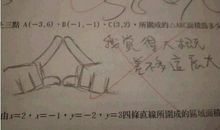 三點 A(-3,6)、B(-1,-1)、C(3,2),所圍成的△ABC面積
我覺得大概
差不多這麼大
由x=2,x=-1,y=-2,y=3四條直線所圍成的區域面積